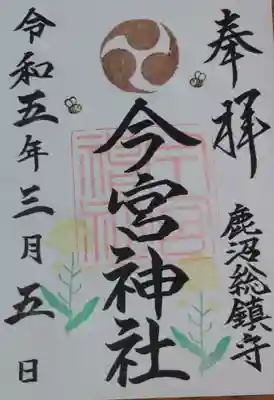 奉拝
鹿沼総鎮守
今宮神社
令和五年三月五日